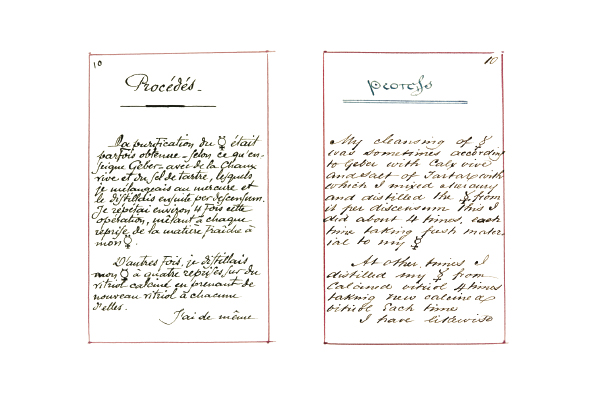 10
Procédés_
La purification du ☿ était
parfois obtenue_selon ce qu'en-
seigne Géber_avec de la Chaux
vive et du sel de tartre, lesquels
je mélangeais au mercure et
le distillais ensuite per descensum.
Je répétai environ 4 fois cette
opération, mettant à chaque
reprise de la matière fraîche à
mon ☿.
D'autres fois, je distillais
mon ☿ à quatre reprises sur du
vitriol calciné en prenant de
nouveau vitriol à chacune
d'elles.
J'ai de même
10
Process
My cleansing of ☿
was sometimes according
to Geber with Calx vive
and Salt of Tartar with
which I mixed Mercury
and distilled the ☿ from
it per descensum This I
did about 4 times, each
time taking fresh mater
ial to my ☿
At other times I
distilled my ☿ from
Calcined vitriol 4 times
taking new calcined
vitriol Each time
I have likewise